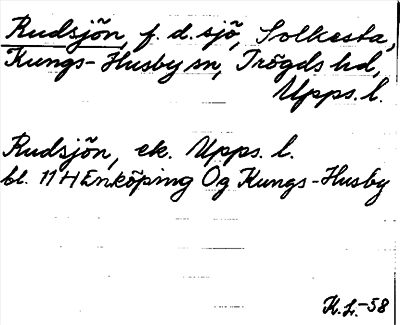 Rudsjön, f. d. sjö, Solkesta,
Kungs-Husby sn, Trögds hd,
Upps. l.
Rudsjön, ek. Upps. l.
bl. 11 H Enköping Og Kungs-Husby
K.L.-58